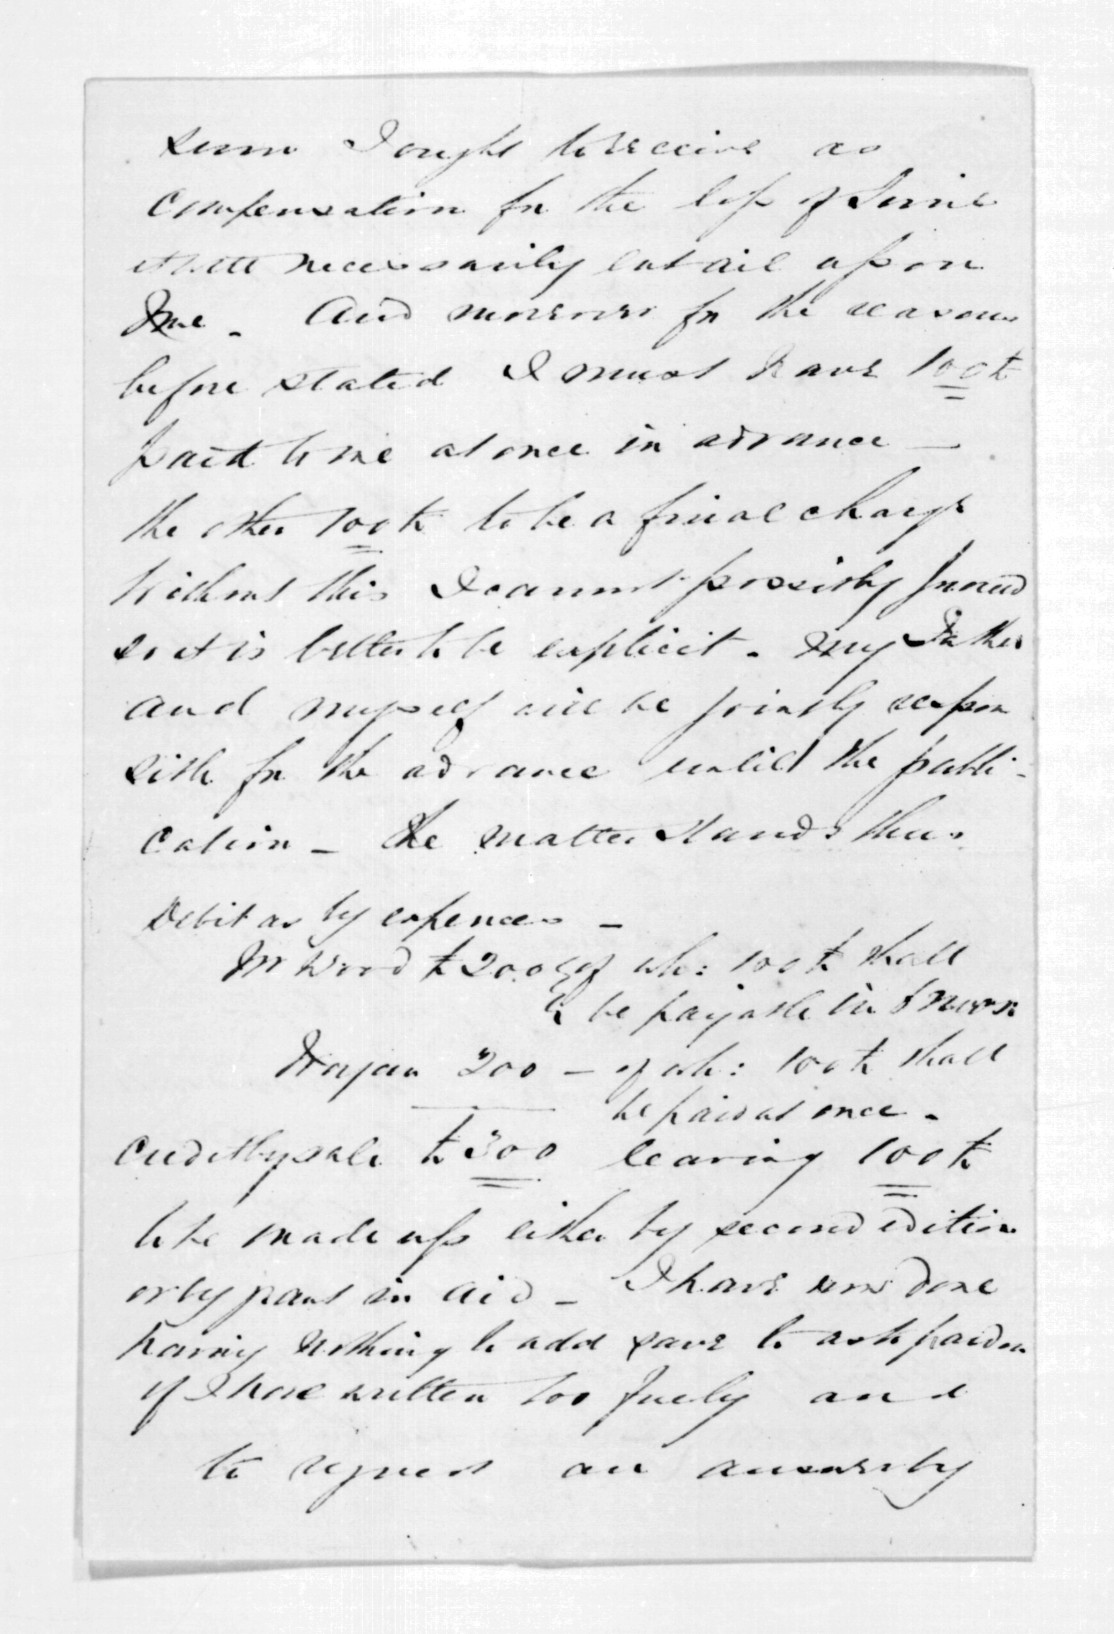 sum I ought to receive as
compensation for the loss of time
it will necessarily entail upon
me. And moreover for the reasons
before stated I must have 100£
paid to me at once in advance —
the other 100£ to be a final charge
Without this I cannot possibly proceed
so it is better to be explicit. My Father
and myself will be jointly respon
sible for the advance until the publi-
cation — the matter stands thus.
Debit as by expences —
Mr Wood £200 of wh: 100£ shall
be payable in
200 — of wh: 100£ shall
be paid at once.
Credit by sale £300 leaving 100£
to be made up either by second edition
or by grant in aid — I have now done
having nothing to add save to ask pardon
if I have written too freely and
to request an answer by